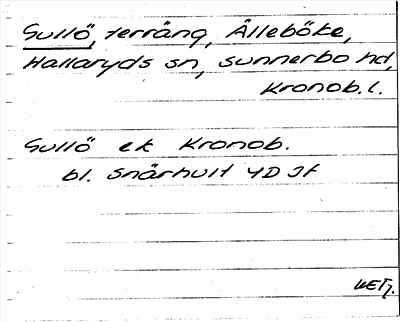 Gullö, terräng, Älleböke,
Hallaryds sn, Sunnerbo hd,
Kronob. l.
Gullö ek Kronob.
bl. Snärhult 4D Jf